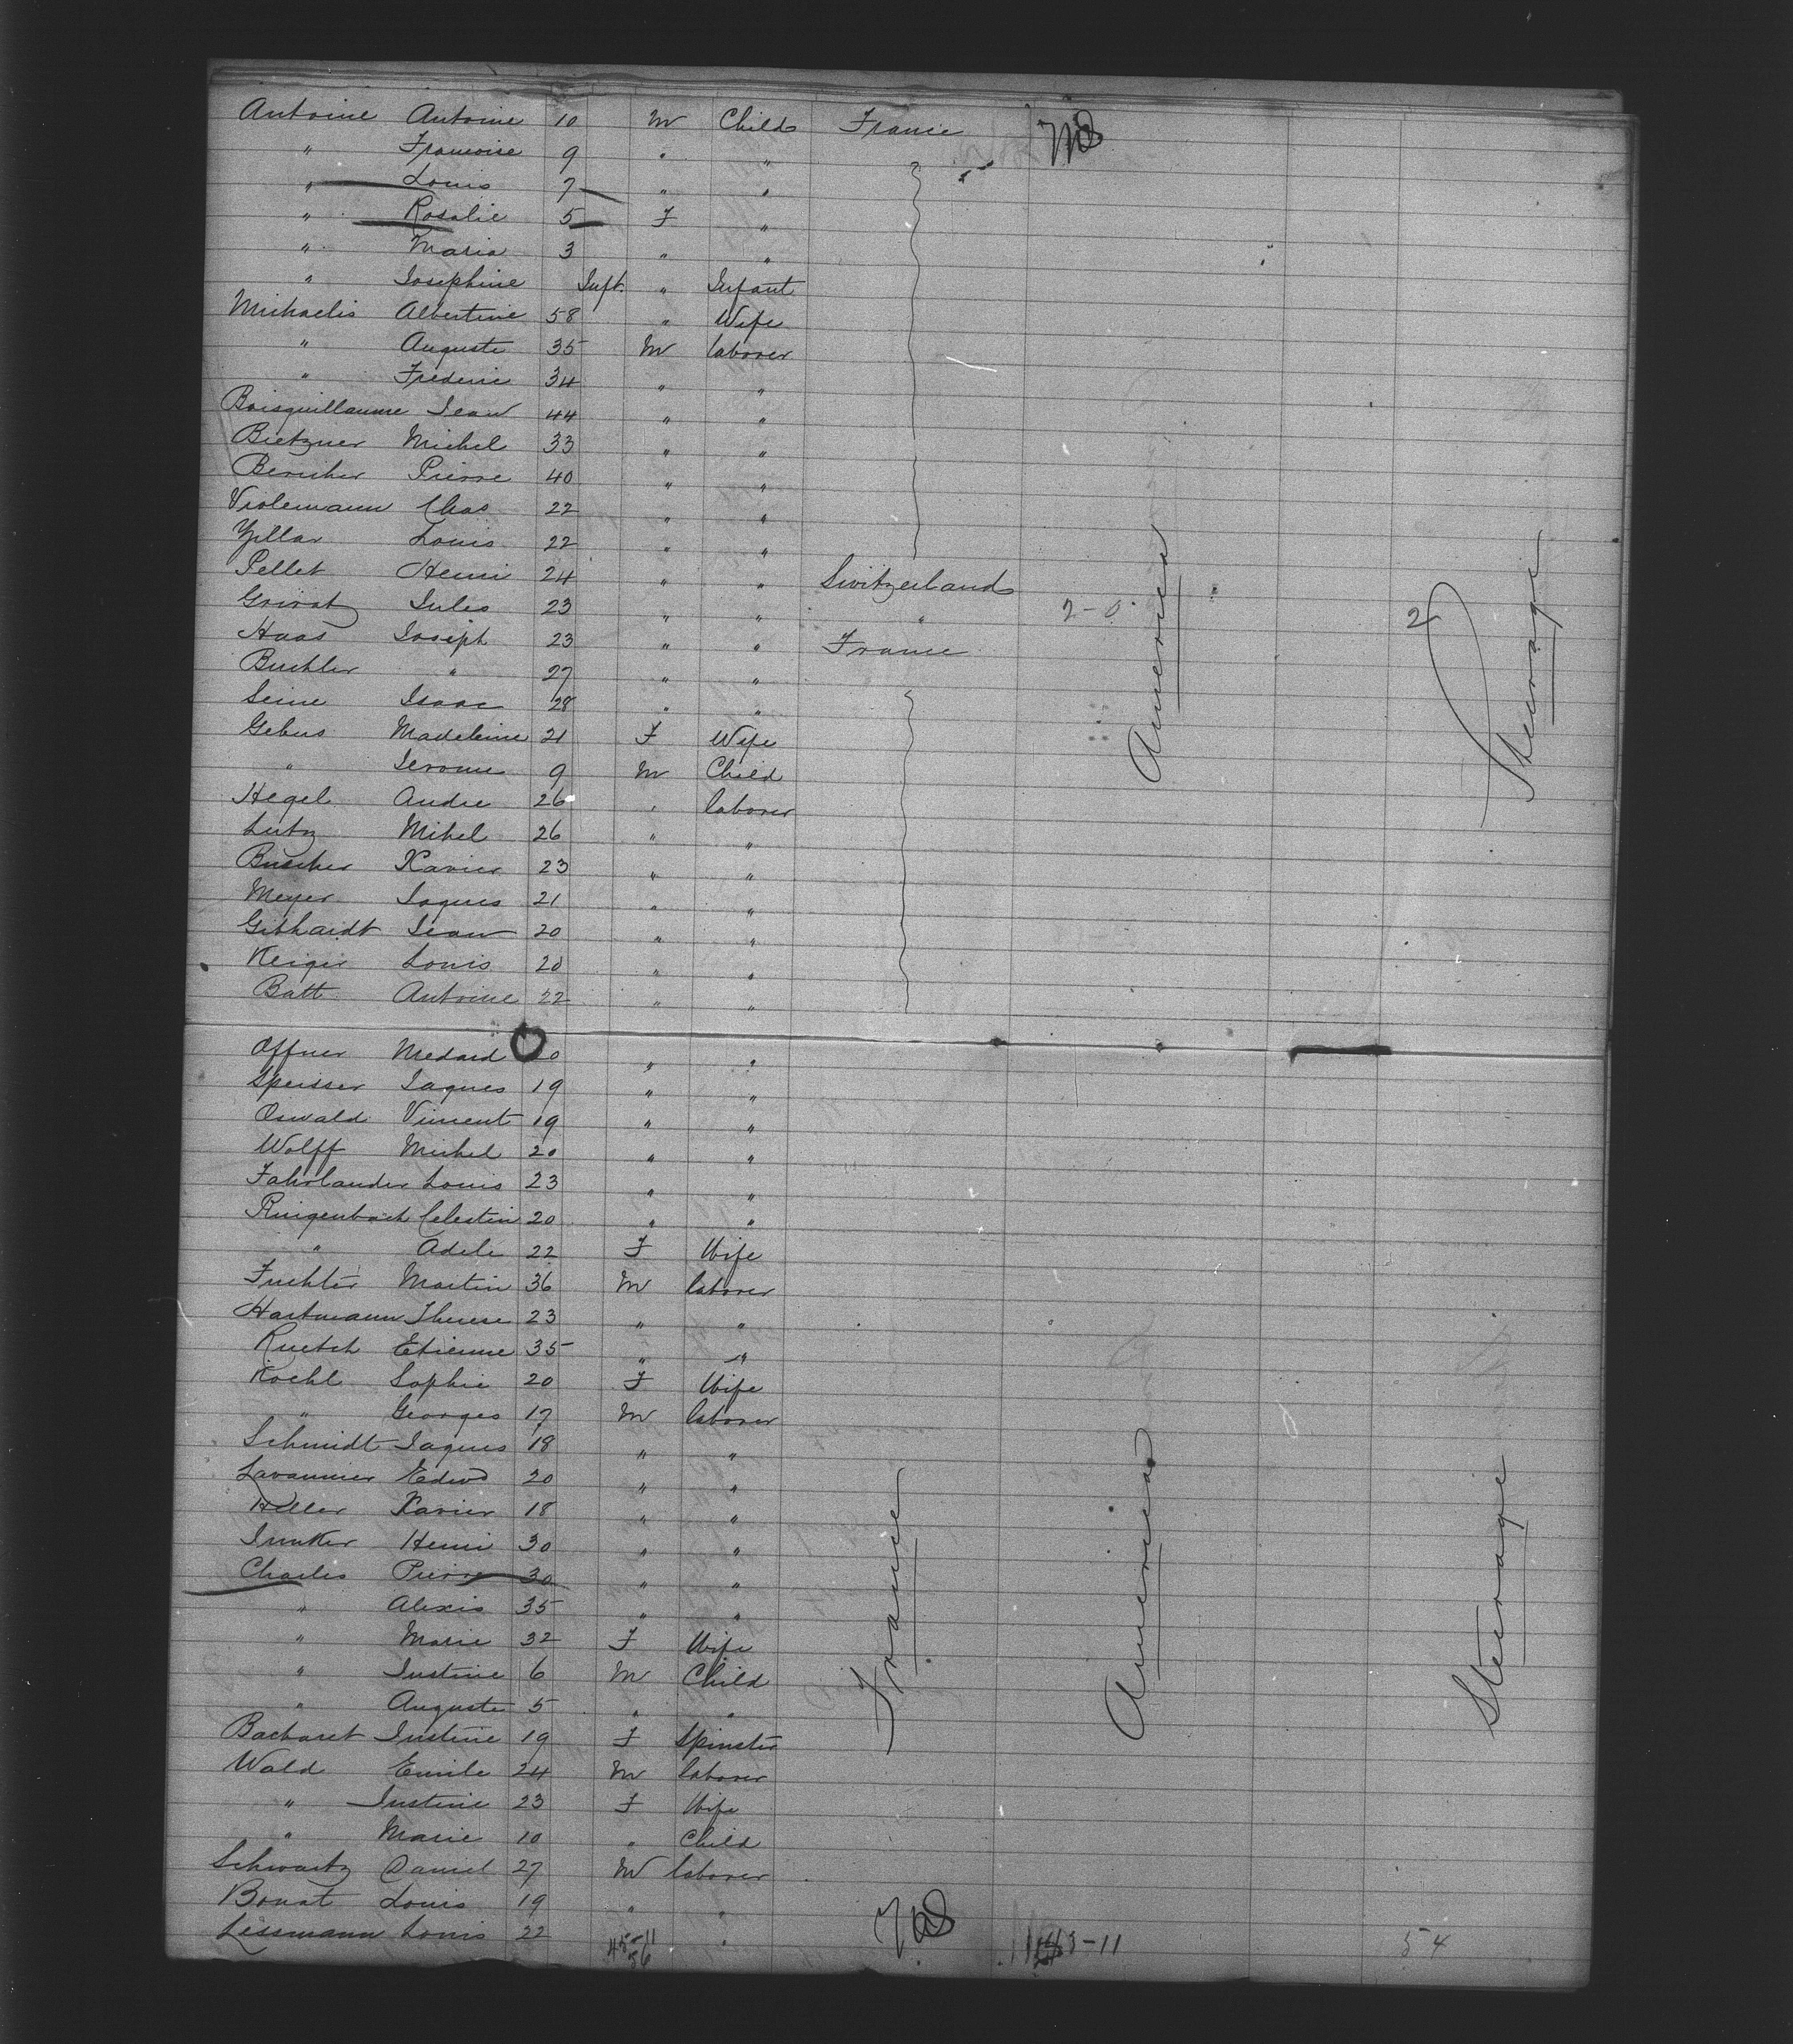 Antoine Antoine 10 M Child France
" Francoise 9 " "
" Louis 7 " "
" Rosalie 5 F "
" Maria 3 " "
" Josephine Inft. " Infant
Michaelis Albertine 58 " Wife
" Auguste 35 M laborer
" Frederic 34 " "
Boisguillaume Jean 44 " "
Bietzner Michel 33 " "
Pierre 40 " "
Violemann Chas 22 " "
Louis 22 " "
Pellet Henri 24 " " Switzerland
Grivat Jules 23 " " " 2-0 2
Haas Joseph 23 " " France
Buehler " 27 " "
Seine Isaac 28 " "
Gebus Madeleine 21 F Wife
" Jerome 9 M Child
Hegel Andre 26 " laborer
Lutz Mihel 26 " "
Buecher Xavier 23 " "
Meyer Jaques 21 " "
Gebhardt Jean 20 " "
Keiger Louis 20 " "
Batt Antoine 22 " "
America
Steerage
Offner Medard 20 " "
Speisser Jaques 19 " "
Oswald Vincent 19 " "
Wolff Michel 20 " "
Fahrlander Louis 23 " "
Ringenbach Celestin 20 " "
" Adele 22 F Wife
Fuchter Martin 36 M laborer
Hartmann Therese 23 " "
Ruetsch Etienne 35 " "
Koehl Sophie 20 F Wife
" Georges 17 M laborer
Schmidt Jaques 18 " "
Lavannier Edwd 20 " "
Heller Xavier 18 " "
Junker Henri 30 " "
Charles Pierre 30 " "
" Alexis 35 " "
" Marie 32 F Wife
" Justine 6 M Child
" Auguste 5 " "
Bacharet Justine 19 F Spinster
Wald Emile 24 M laborer
" Justine 23 F Wife
" Marie 10 " Child
Schwartz Daniel 27 M laborer
Bonat Louis 19 " "
Lessmann Louis 22 "
France
America
Steerage
45-11
56
54